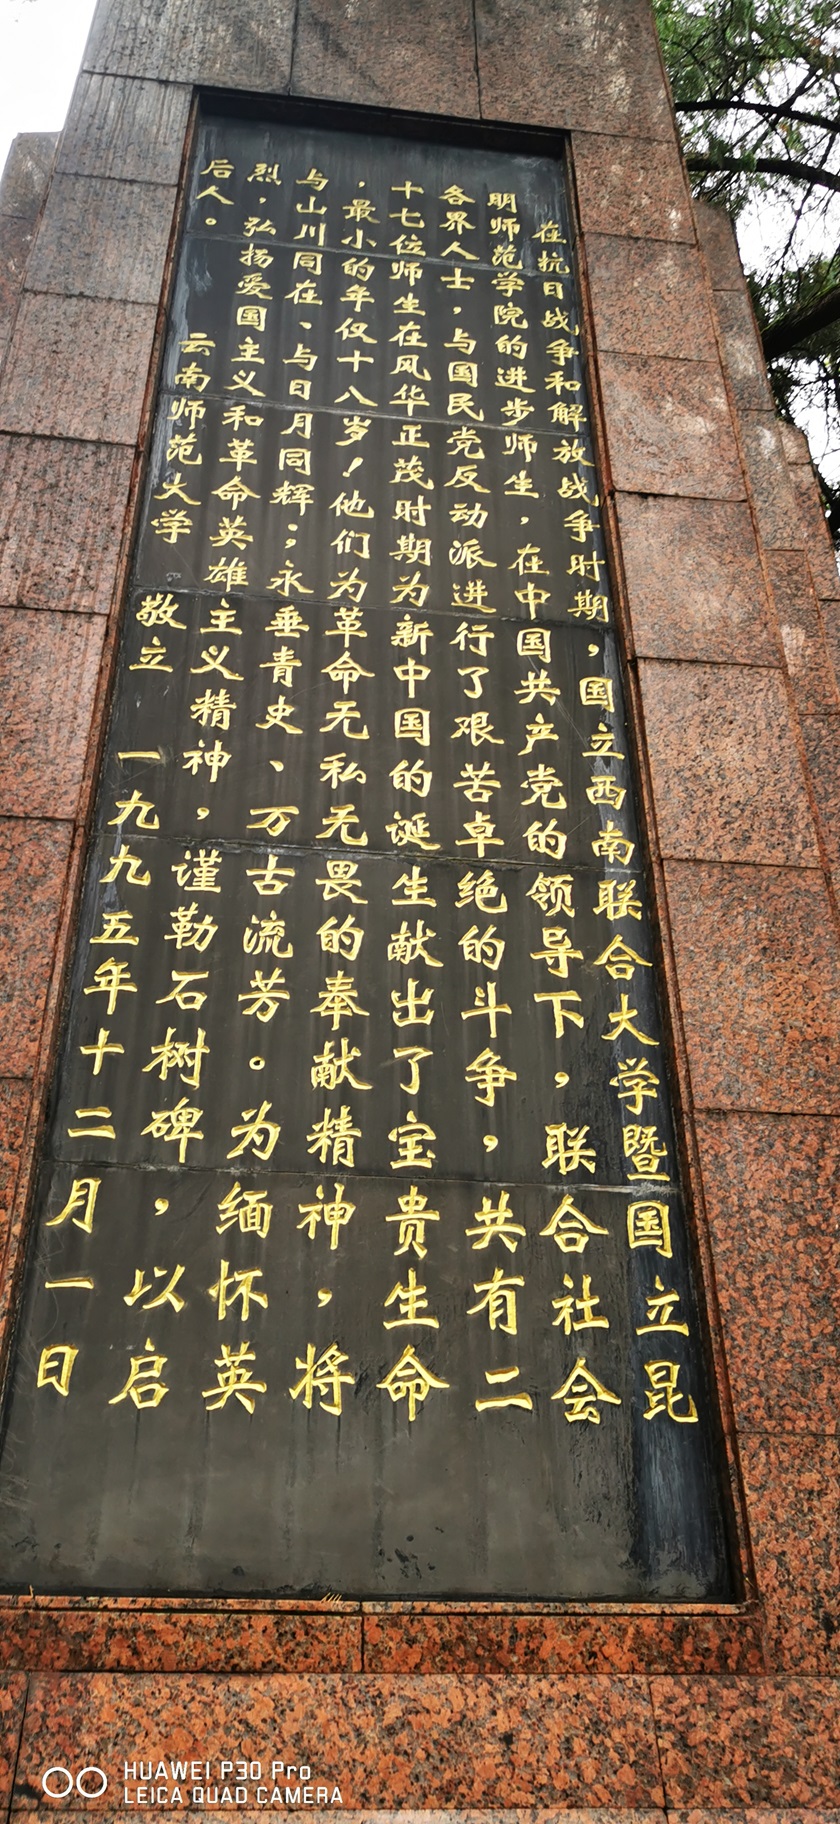 在抗日战争和解放战争时期，国立西南联合大学暨国立昆
明师范学院的进步师生，在中国共产党的领导下，联合社会
各界人士，与国民党反动派进行了艰苦卓绝的斗争，共有二
十七位师生在风华正茂时期为新中国的诞生献出了宝贵生命
，最小的年仅十八岁！他们为革命无私无畏的奉献精神，将
与山川同在、与日月同辉；永垂青史、万古流芳。为缅怀英
烈，弘扬爱国主义和革命英雄主义精神，谨勒石树碑，以启
后人。
云南师范大学 敬立 一九九五年十二月一日
HUAWEI P30 Pro
LEICA QUAD CAMERA